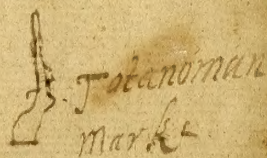 Totanoman
marke